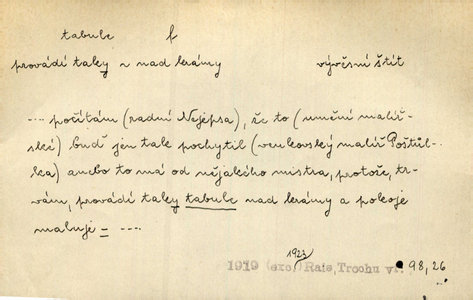 tabule f
provádí taky ~ nad krámy vývěsní štít
--- počítám (radní Nejepsa), že to (umění malíř-
ské) buď jen tak pochytil (venkovský malíř Poštůl-
ka) anebo to má od nějakého mistra, protože, tr-
vám, provádí taky tabule nad krámy a pokoje
maluje = ----
1923
1919 (exc.) Rais, Trochu vl. 98, 26